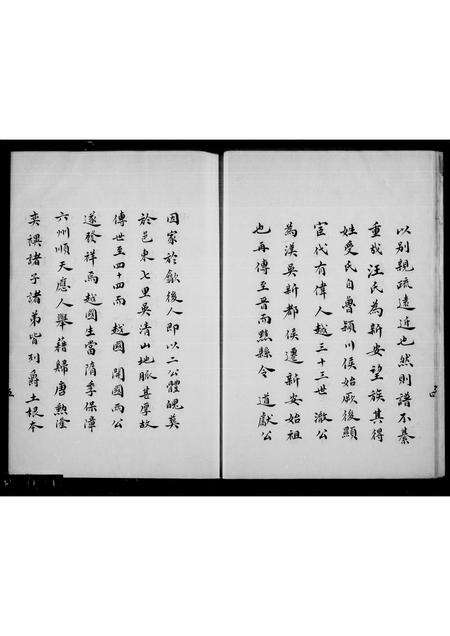 以別親疏遠近也然則譜不綦
重哉汪氏為新安望族其得
姓受氏自魯潁川侯始厥後顯
宦代有偉人越三十三世 澈公
為漢吳新都侯遷新安始祖
也再傳至晉而黟縣令 道獻公
因家於歙後人即以二公體魄奠
於邑東七里吳清山地脈甚厚故
傳世至四十四而 越國 開國兩公
遂發祥焉越國生當隋季保障
六州順天應人舉 藉歸唐勲澄
奕禩諸子諸弟皆列爵土根本